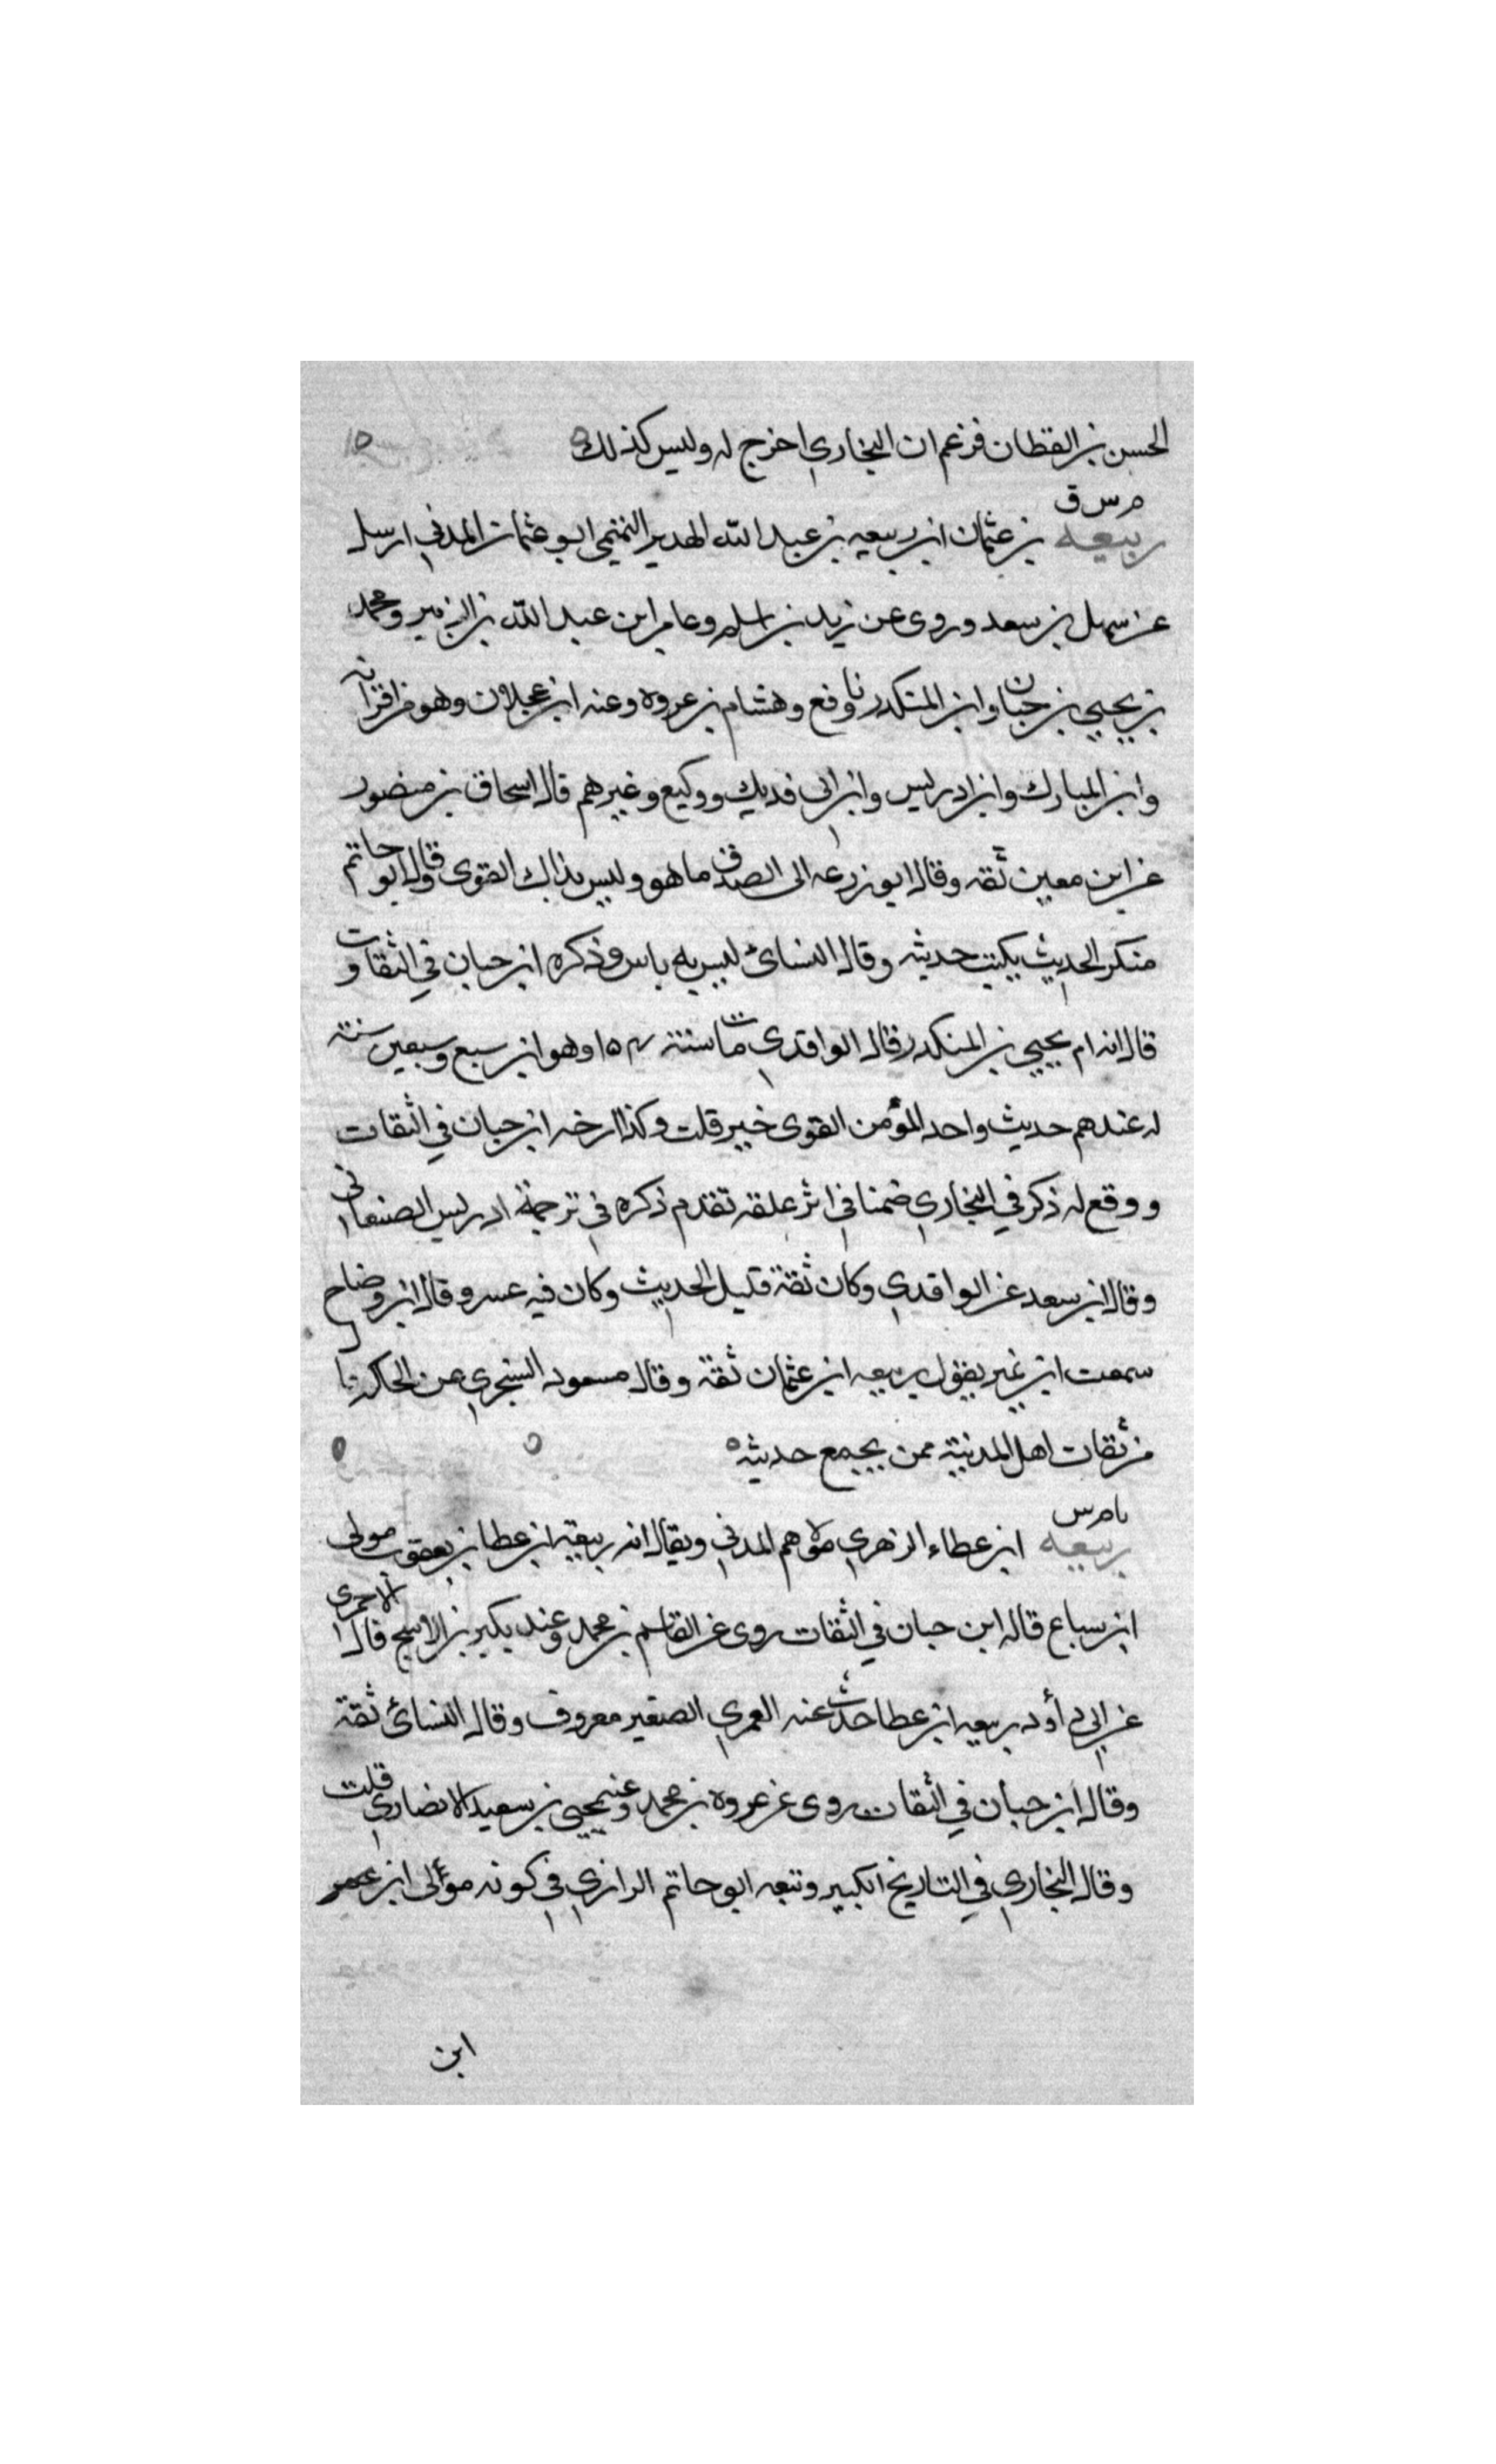 الحسن بن القطان فزعم ان البخاري اخرج له وليس كذلك
م س ق
ربيعه بن عثمان ابن ربيعه بن عبد الله الهدير التيمي ابو عثمان المدني ارسل
عن سهل بن سعد وروى عن زيد بن اسلم وعامر ابن عبد الله بن الزبير ومحمد
بن يحيى بن حبان وابن المنكدر نا وفع وهشام بن عروه وعنه ابن عجلان وهو من اقرانه
وابن المبارك وابن ادريس وابن ابى فديك ووكيع وغيرهم قال اسحاق بن منصور
عن ابن معين ثقه وقال ابو زرعه الى الصدق ما هو وليس بذاك القوى وقال ابو حاتم
منكر الحديث يكتب حديثه وقال النسائ ليس به باس وذكره ابن حبان في الثقات و
قال انه ام يحيى بن المنكدر قال الواقدي مات سنة ١٥٤ وهو ابن سبع وسبعين سنة
له عندهم حديث واحد المؤمن القوى خير قلت وكذا ارخه ابن حبان في الثقات
ووقع له ذكر في البخاري ضمنا في اثر علقه تقدم ذكره في ترجمة ادريس الصنعاني
وقال ابن سعد عن الواقدي وكان ثقة قليل الحديث وكان فيه عسر وقال ابن وضاح
سمعت ابن نمير يقول ربيعه ابن عثمان ثقة وقال مسعود السنجري عن الحاكم
من ثقات اهل المدنية ممن يجمع حديثه
م س
ربيعه ابن عطاء الزهري مولاهم المدني ويقال انه ربيعة ابن عطا بن يعقوب مولى
ابن سباع قاله ابن حبان في الثقات روى عن القاسم بن محمد وعنه بكير بن الاشج قال الاجري
عن ابي دأود ربيعه ابن عطا حدث عنه العمري الصغير معروف وقال النسائ ثقة
وقال ابن حبان في الثقات روى عن عروة بن محمد وعنه يحيى بن سعيد الانصاري قلت
وقال البخاري في التاريخ الكبير وتبعه ابو حاتم الرازي في كونه مولى ابن
ابن